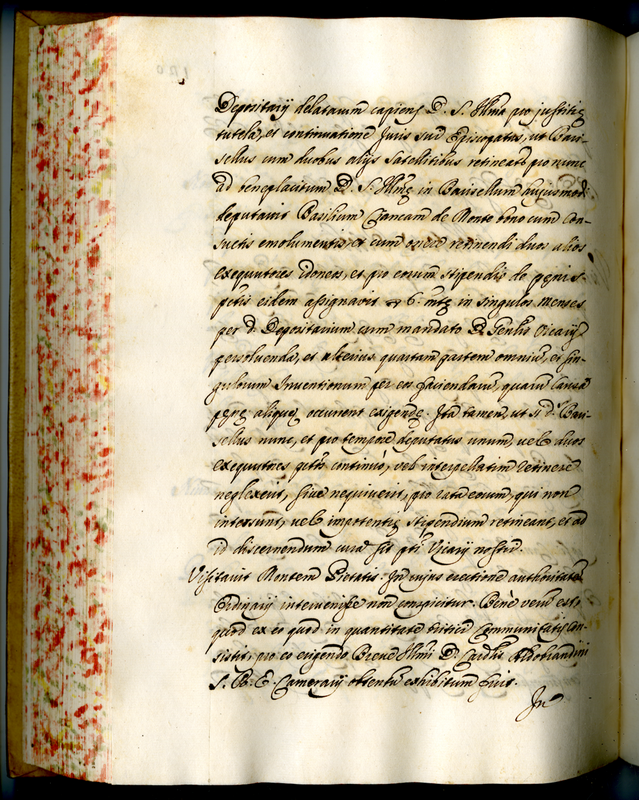 Depositarij delatarum capiens D. S. Illma pro justitiæ
tutela, et continuatione Juris sui Episcopatus, ut Bari-
sellus cum duobus alijs satellitibus retineatr pro nunc
ad beneplacitum D. S. Illmæ in Barisellum hujusmodi
deputavit Basilium de Monte bono cum con-
suetis emolumentis, et cum onere retinendi duos alios
exequutores idoneos, et pro eorum stipendijs de
eidem assignavit 6. mtæ in singulos menses
per d. Depositarium cum mandato D. Genlis Vicarij
persolvenda, et ulterius quartam partem omniu, et sin-
gulorum Inventionum per eos faciendaru, quarum causa
penæ aliquæ occurent exigendæ. Ita tamen, ut si ds Bari-
sellus nunc, et pro tempore deputatus unum, vel duos
exequutores continuò, vel interpellatim retinere
neglexerit, sive nequiverit, pro rata eorum, qui non
interfunt, vel impotentes stipendium retineant, et ad
id discernendum cura sit Vicarij nostri.
Visitavit Montem Pietatis. In cujus erectione authoritatem
Ordinarij intervenisse non conspicitur. Benè veru est,
quod ex eo quod in quantitate tritici Communitatis con-
sistit, pro eo erigendo Breve Illmi D. Cardlis Aldobrandini
S. R. E. Camerarij obtentu exhibitum fuit.
In